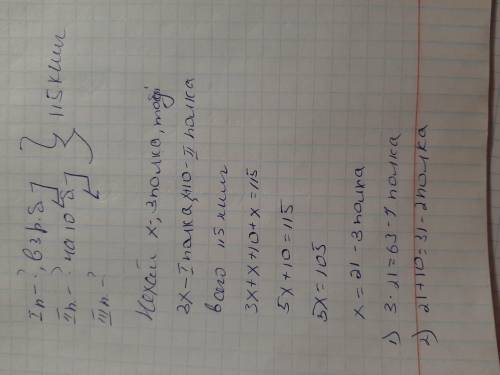 Iп - ?, в 3 р. б.
IIп - ? на 10 б.
IIIп - ?
115 книг
Нехай x - 3 полка, тоді
3x - I полка, x+10 - II полка
всего 115 книг
3x+x+10+x=115
5x+10=115
5x=105
x=21 - 3 полка
1) 3·21=63 - 1 полка
2) 21+10=31 - 2 полка